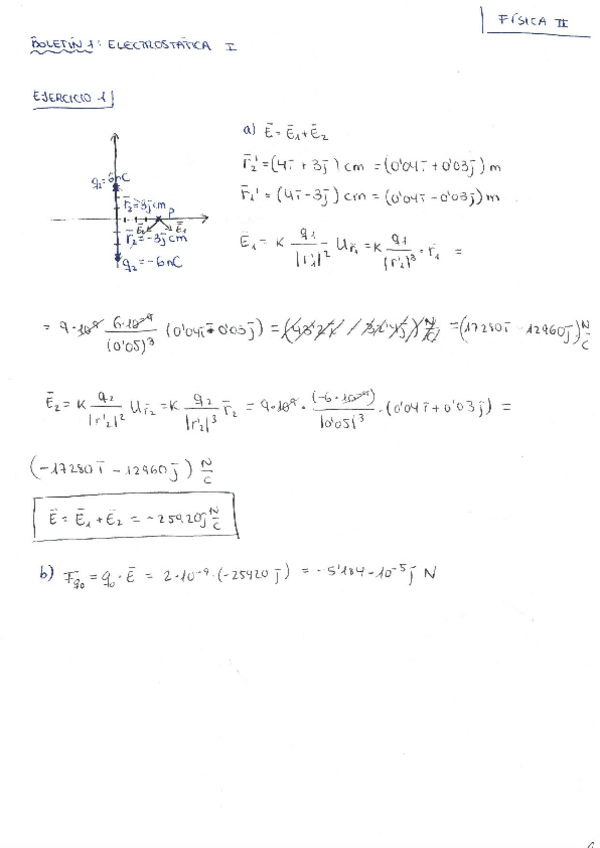 FÍSICA II
BOLETÍN 1: ELECTROSTÁTICA I
EJERCICIO 1
a) E̅ = E̅₁ + E̅₂
r̅₂' = (4i̅ + 3j̅) cm = (0'04i̅ + 0'03j̅) m
r̅₁' = (4i̅ - 3j̅) cm = (0'04i̅ - 0'03j̅) m
q₁ = 6nC
r̅₂ = 3j̅ cm
P
E̅₂ E̅₁
r̅₂ = -3j̅ cm
q₂ = -6nC
E̅₁ = K q₁/|r'₁|² U r̅₁ = K q₁/|r'₁|³ · r̅₁ =
= 9·10⁹ 6·10⁻⁹/(0'05)³ (0'04i̅ - 0'03j̅) = = (17280i̅ - 12960j̅) N/C
E̅₂ = K q₂/|r'₂|² U r̅₂ = K q₂/|r'₂|³ r̅₂ = 9·10⁹ · (-6·10⁻⁹)/|0'05|³ · (0'04i̅ + 0'03j̅) =
(-17280i̅ - 12960j̅) N/C
E̅ = E̅₁ + E̅₂ = -25920j̅ N/C
b) F̅q₀ = q₀ · E̅ = 2·10⁻⁹·(-25920j̅) = -5'184·10⁻⁵j̅ N